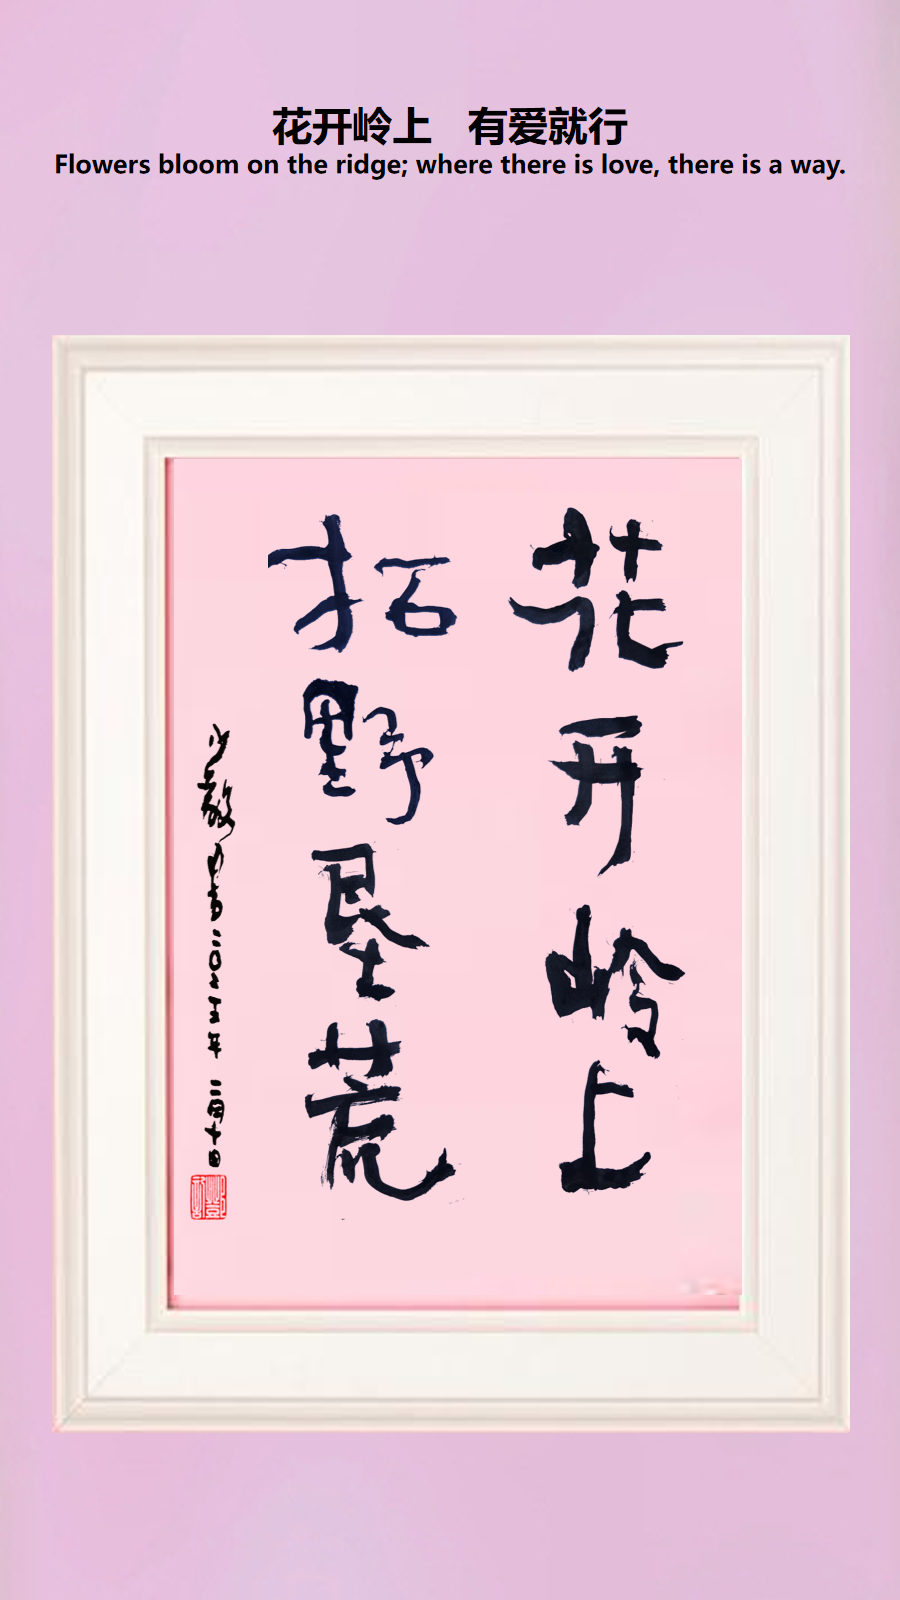 花开岭上 有爱就行
Flowers bloom on the ridge; where there is love, there is a way.
花开岭上
拓野垦荒
二〇二五年 二四十日